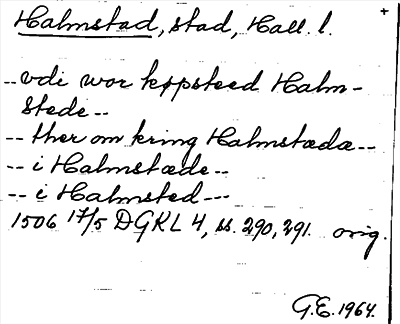 Halmstad, stad, Hall. l. +
-- vdi wor køpsteed Halm-
stede --
-- ther om kring Halmstæda --
-- i Halmstæde --
-- i Halmsted ---
1506 17/5 DGKL 4, ss. 290, 291. orig.
G.E. 1964.